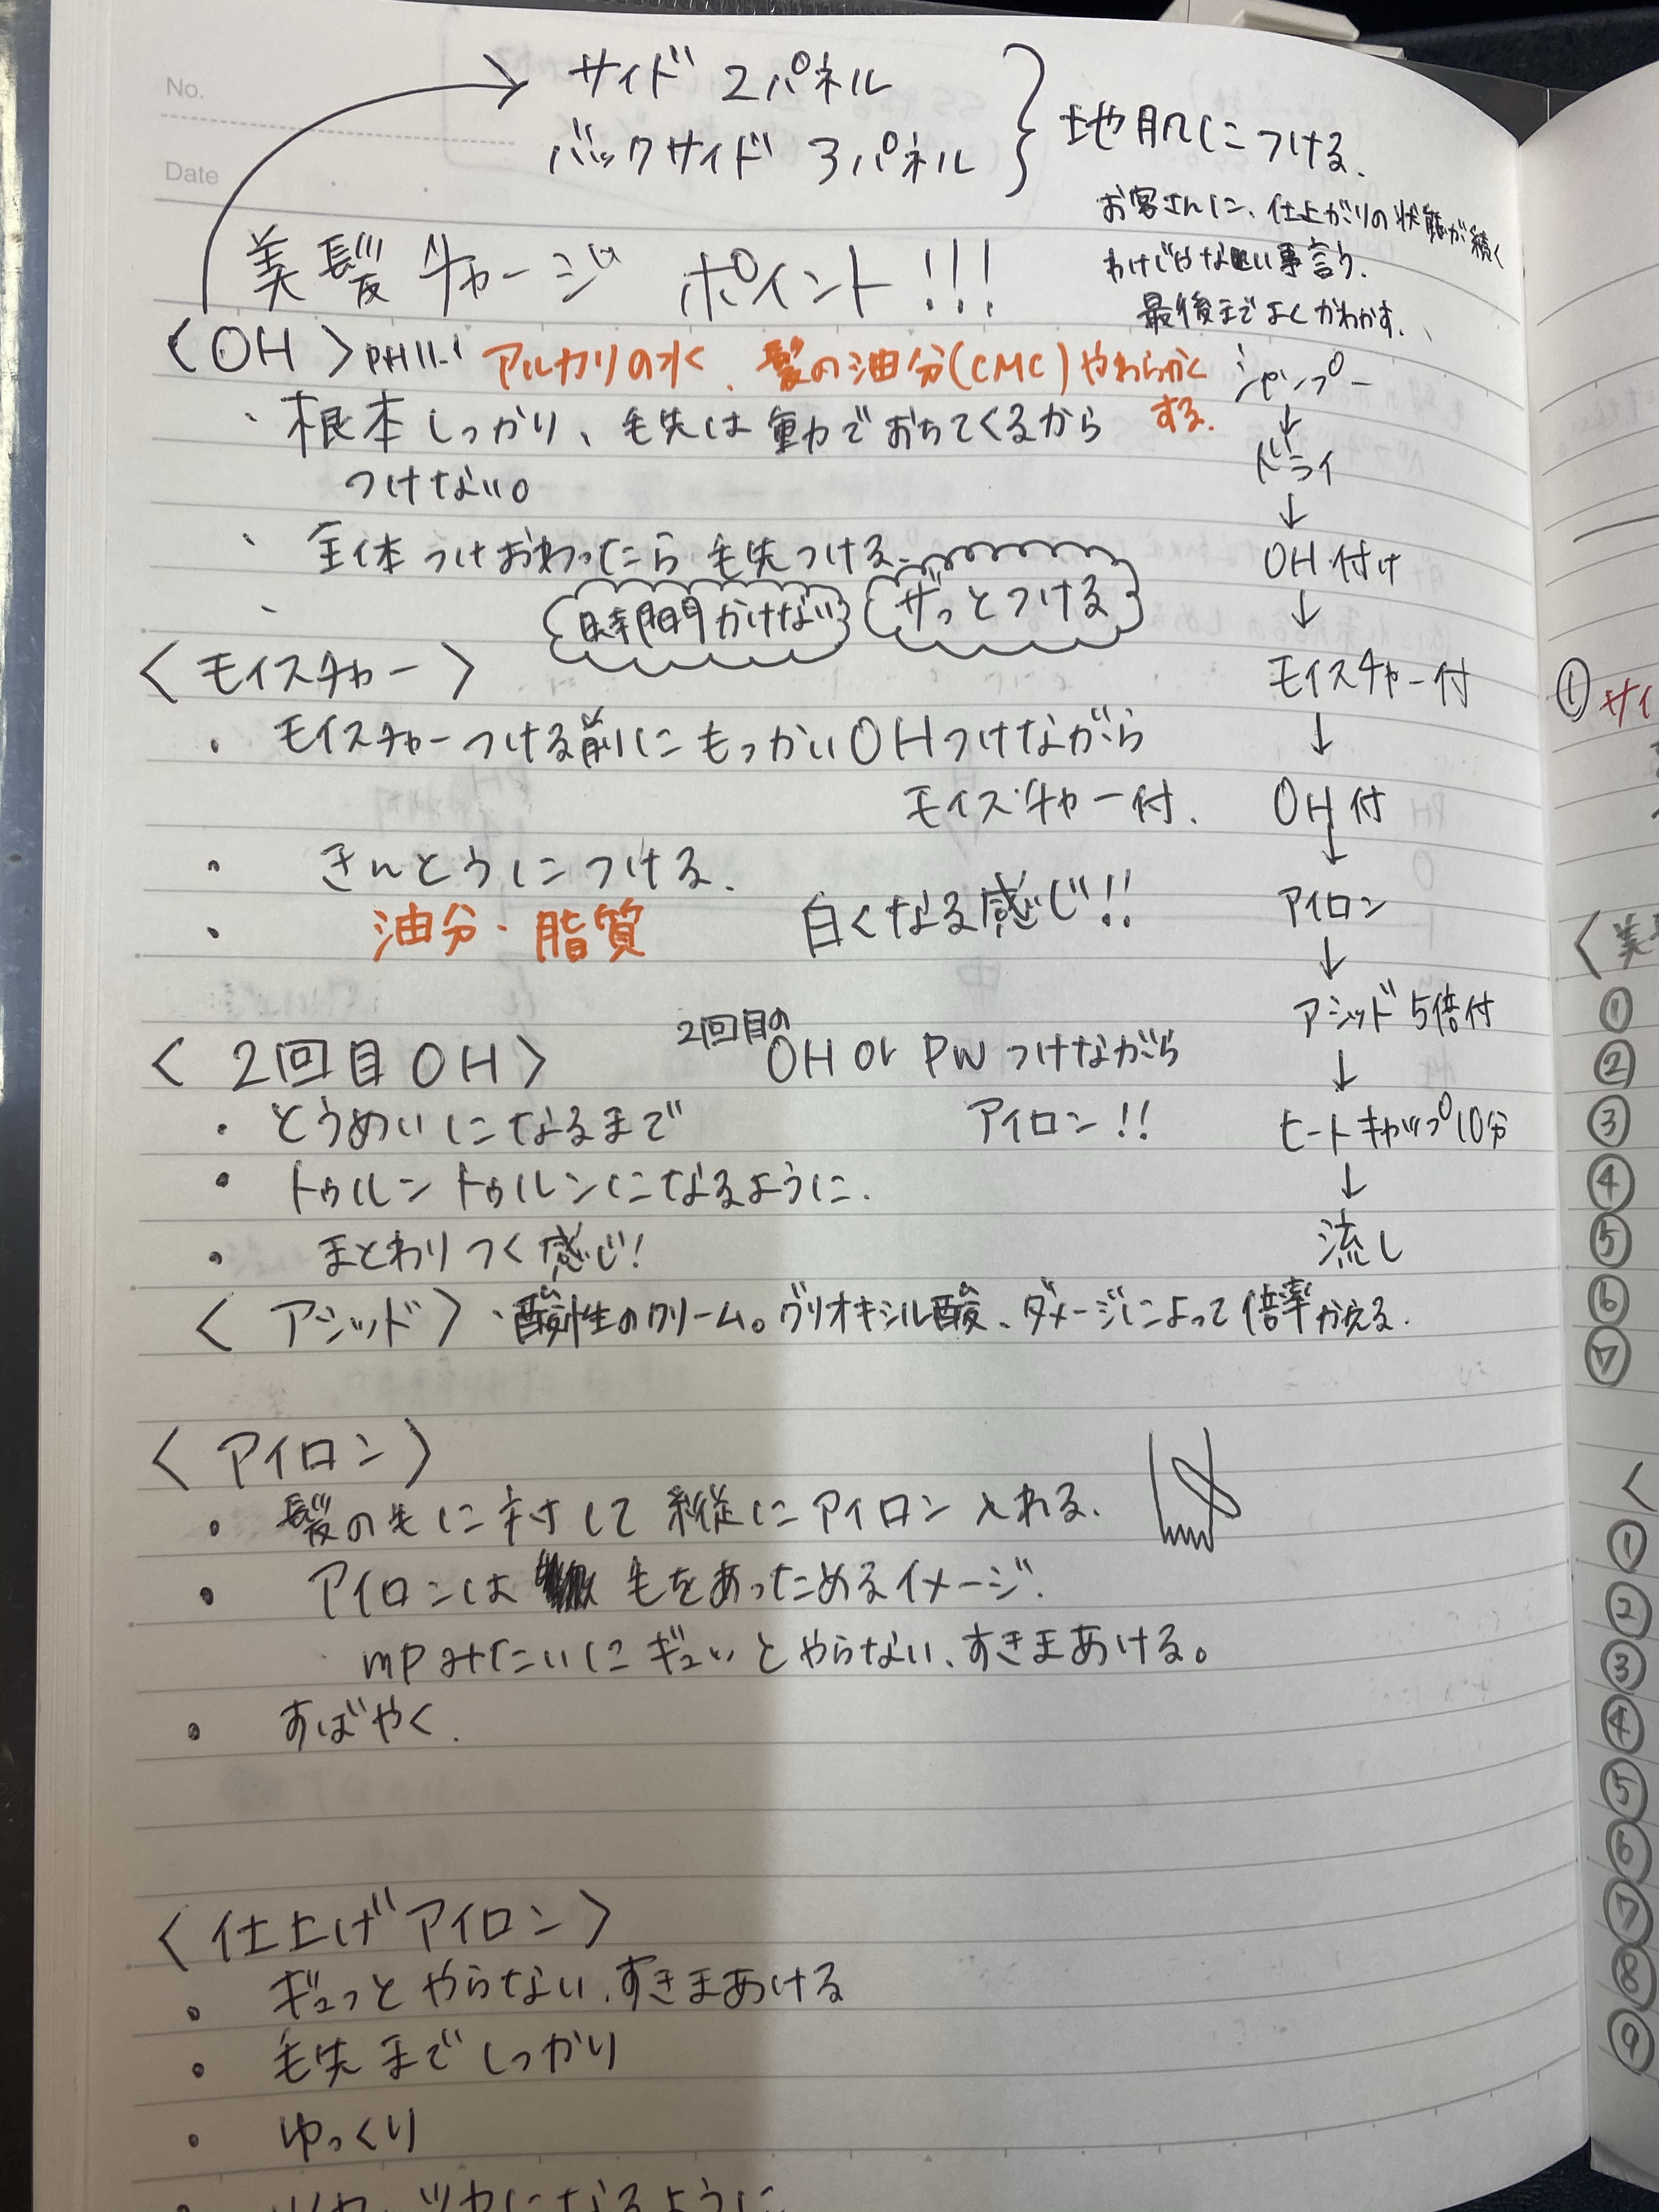 No.
Date
サイド 2パネル
バックサイド 3パネル
地肌につける.
お客さんに、仕上がりの状態が続く
わけじゃない事言う.
最後までよくかわかす.
美髪チャージ ポイント!!!
〈OH〉PH11.1 アルカリの水、髪の油分(CMC)やわらかく
する.
・根本しっかり、毛先は重力でおちてくるから
つけない。
・全体つけおわったら毛先つける.
時間かけない
ザっとつける
〈モイスチャー〉
・モイスチャーつける前にもっかいOHつけながら
モイスチャー付.
・きんとうにつける.
・油分・脂質
白くなる感じ!!
〈2回目OH〉
2回目の
OH or PWつけながら
アイロン!!
・とうめいになるまで
・トゥルントゥルンになるように.
・まとわりつく感じ!
〈アシッド〉・酸性のクリーム。グリオキシル酸、ダメージによって倍率かえる.
〈アイロン〉
・髪の毛に対して縦にアイロン入れる.
・アイロンは 毛をあっためるイメージ.
mpみたいにギュッとやらない、すきまあける。
・すばやく.
〈仕上げアイロン〉
・ギュっとやらない、すきまあける
・毛先までしっかり
・ゆっくり
・ツヤツヤになるように
シャンプー
↓
ドライ
↓
OH付け
↓
モイスチャー付
↓
OH付
↓
アイロン
↓
アシッド5倍付
↓
ヒートキャップ10分
↓
流し
① サイ
〈美
①
②
③
④
⑤
⑥
⑦
〈
①
②
③
④
⑤
⑥
⑦
⑧
⑨